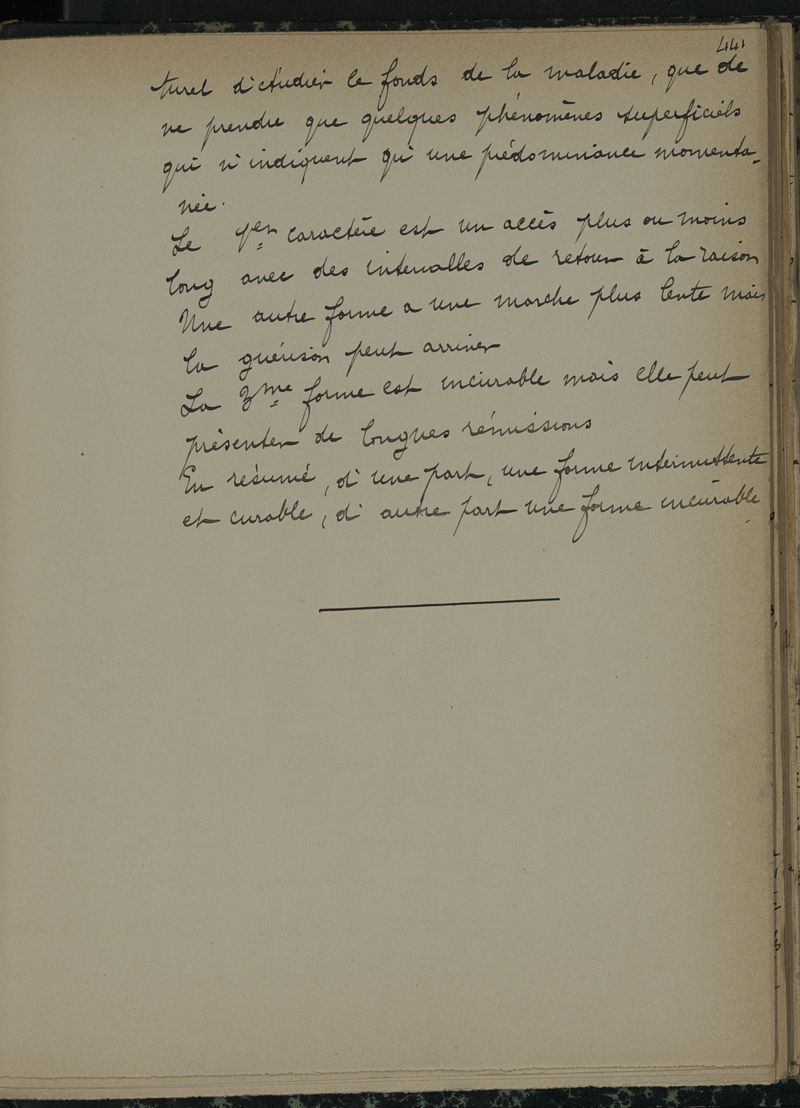 441
turel d'étudier le fonds de la maladie, que de
ne prendre que quelques phénomènes superficiels
qui n'indiquent qu'une prédominance momenta-
née.
Le 1er caractère est un accès plus ou moins
long avec des intervalles de retour à la raison
Une autre forme a une marche plus lente mais
la guérison peut arriver
La 3me forme est incurable mais elle peut
présenter de longues rémissions
En résumé, d'une part, une forme intermittente
et curable, d'autre part une forme incurable